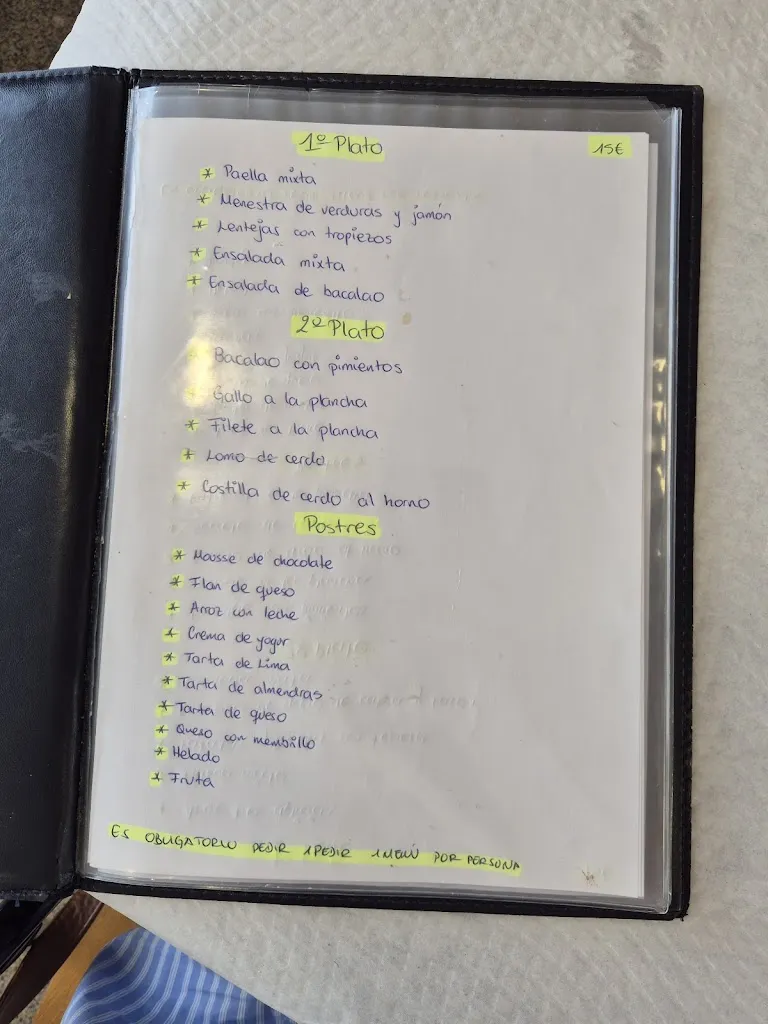 1º Plato
15€
* Paella mixta
* Menestra de verduras y jamón
* Lentejas con tropiezos
* Ensalada mixta
* Ensalada de bacalao
2º Plato
* Bacalao con pimientos
* Gallo a la plancha
* Filete a la plancha
* Lomo de cerdo
* Costilla de cerdo al horno
Postres
* Mousse de chocolate
* Flan de queso
* Arroz con leche
* Crema de yogur
* Tarta de Lima
* Tarta de almendras
* Tarta de queso
* Queso con membrillo
* Helado
* Fruta
ES OBLIGATORIO PEDIR 1PEDIR 1MENÚ POR PERSONA